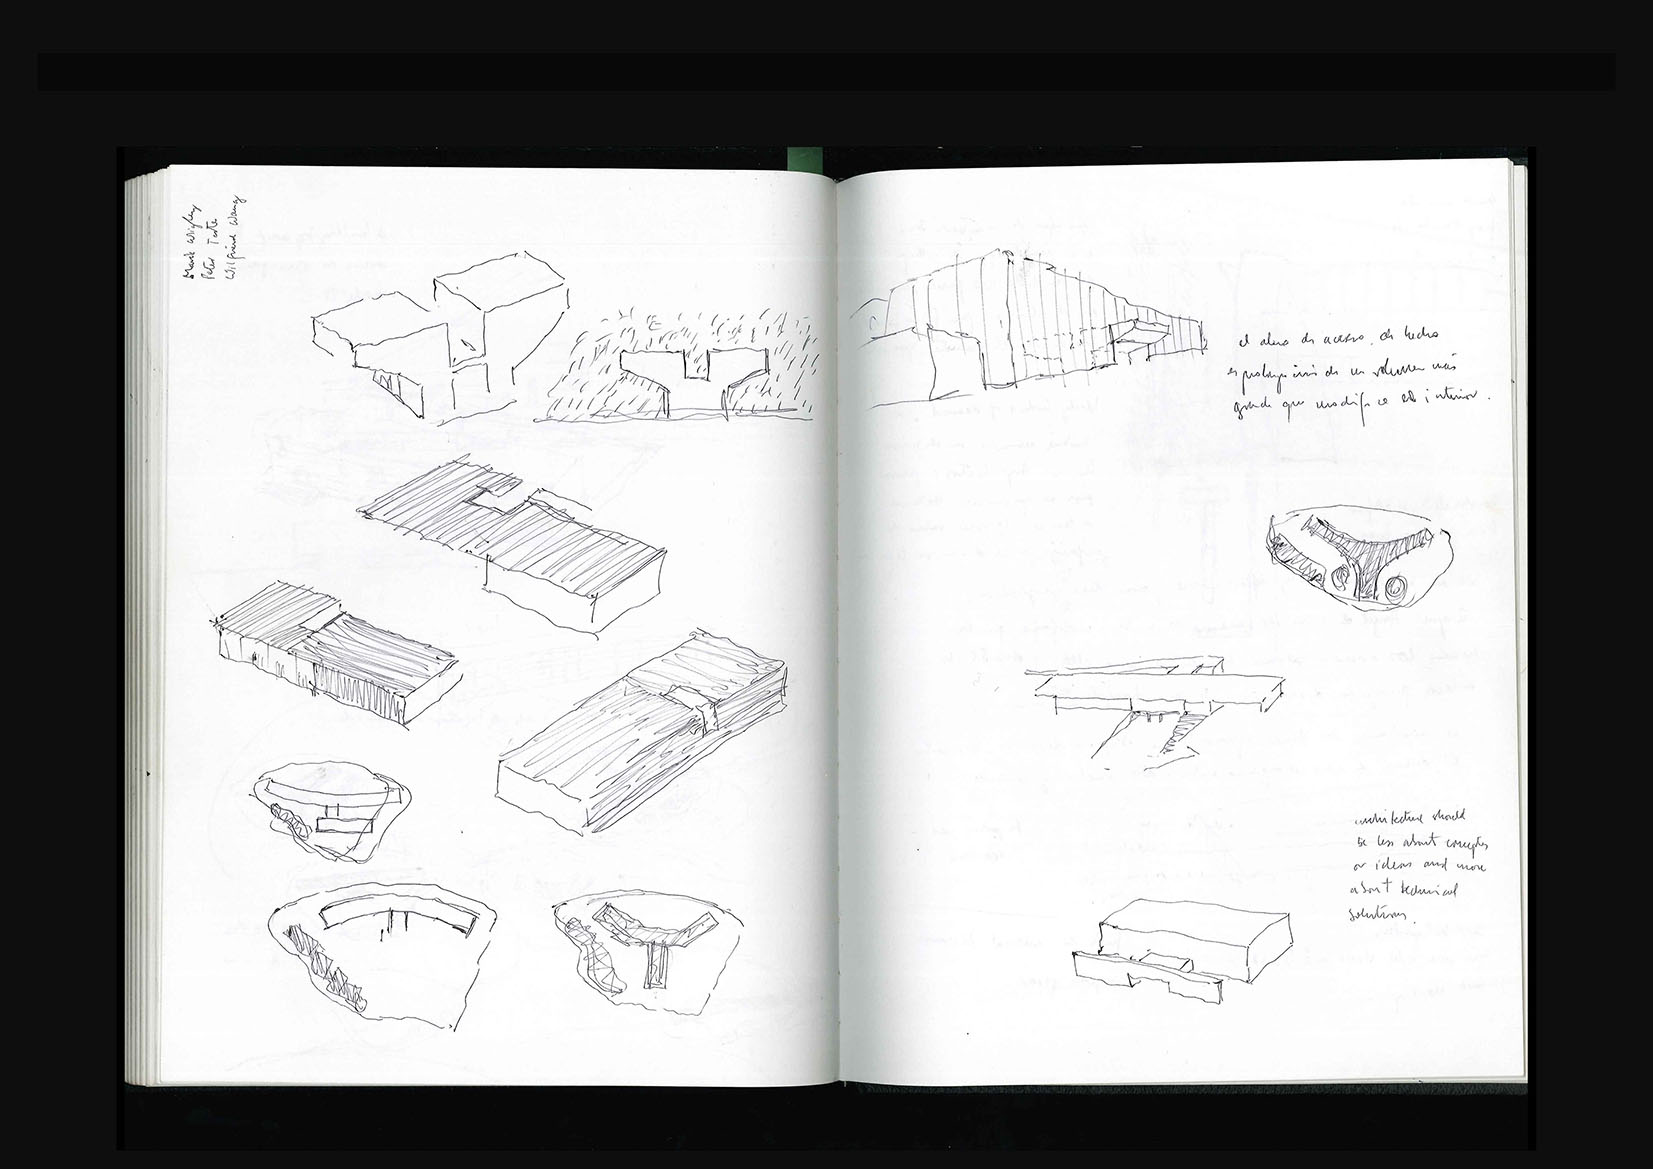 Mark Wigley
Peter Testa
Wilfried Wang
el alero de acceso, de hecho
es prolongación de un volumen más
grande que modifica el interior.
architecture should
be less about concepts
or ideas and more
about technical
solutions.